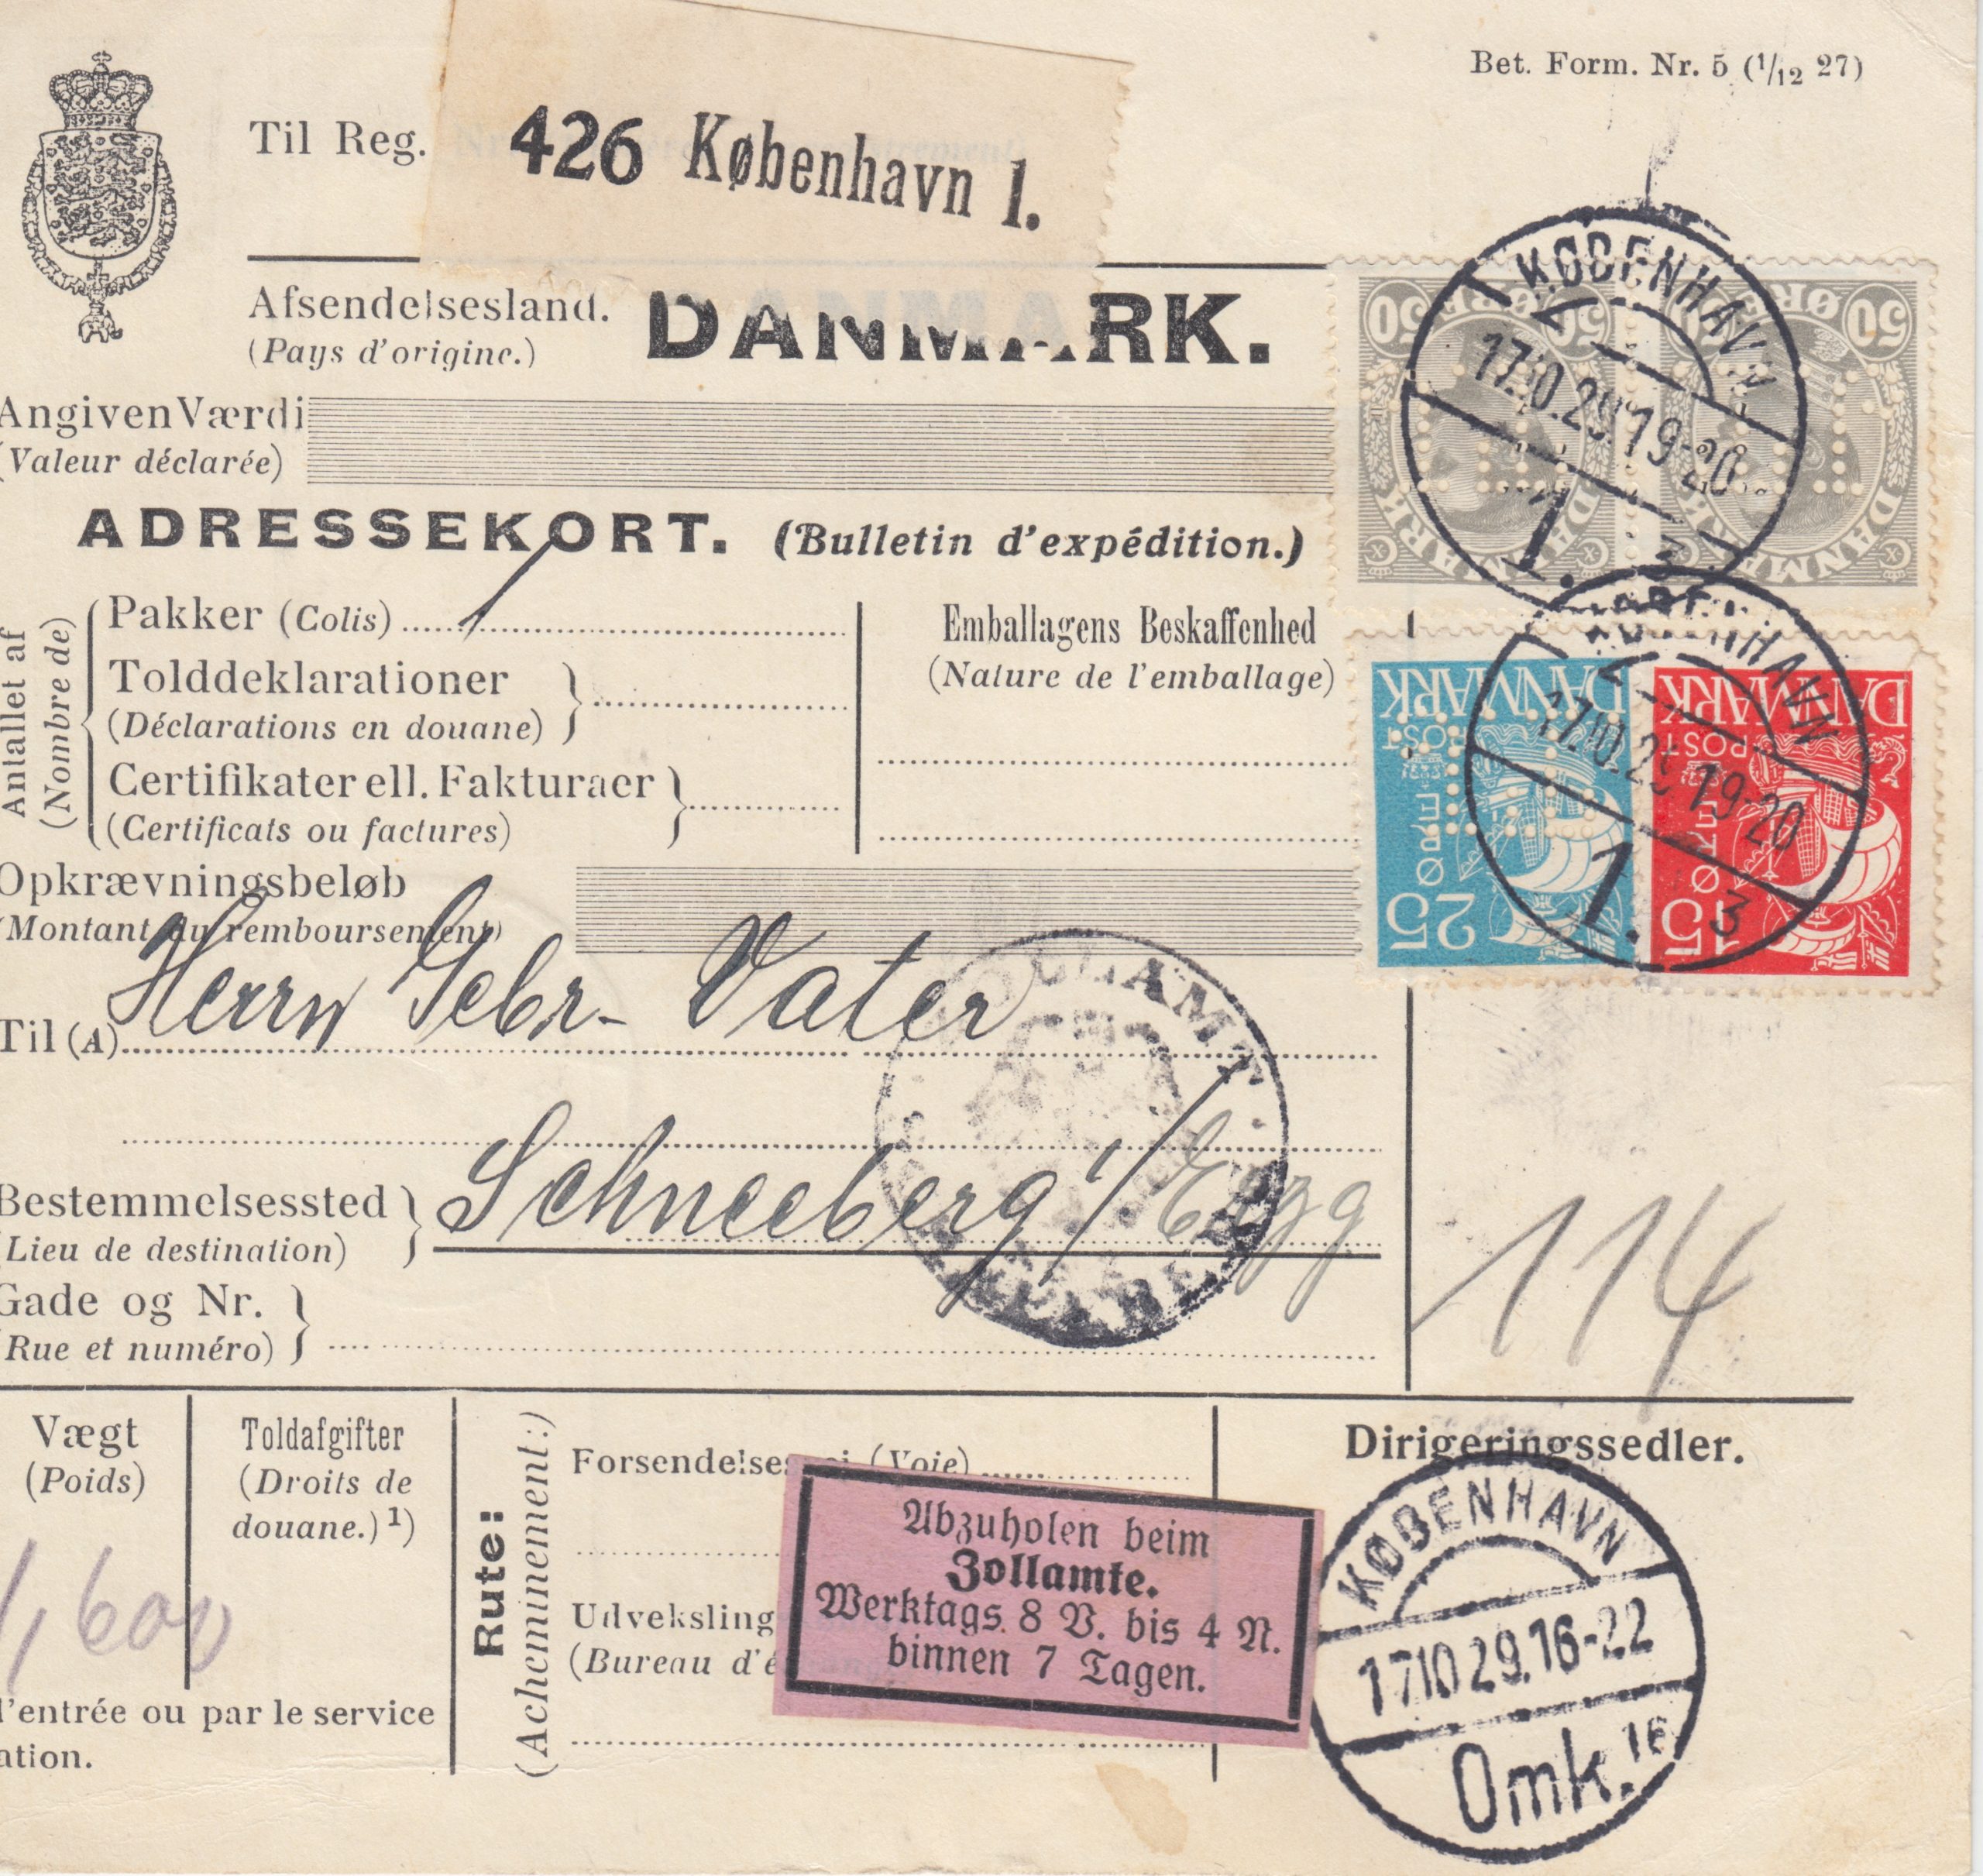 Bet. Form. Nr. 5 (1/12 27)
Til Reg.
426 København 1.
Afsendelsesland.
(Pays d'origine.)
DANMARK.
Angiven Værdi
(Valeur déclarée)
ADRESSEKORT. (Bulletin d'expédition.)
Antallet af
(Nombre de)
Pakker (Colis) 1
Tolddeklarationer
(Déclarations en douane)
Certifikater ell. Fakturaer
(Certificats ou factures)
Emballagens Beskaffenhed
(Nature de l'emballage)
50 ØRE 50
DANMARK
50 ØRE 50
DANMARK
KØBENHAVN
17.10.29.19-20
1.
3
DANMARK
POST
ØRE
25
DANMARK
POST
ØRE
15
KØBENHAVN
17.10.29 19-20
1.
3
Opkrævningsbeløb
(Montant du remboursement)
Til (A) Herrn Gebr. Vater
ZOLLAMT
Bestemmelsessted
(Lieu de destination)
Schneeberg i/ Erzg
Gade og Nr.
(Rue et numéro)
114
Vægt
(Poids)
1,600
Toldafgifter
(Droits de
douane.) 1)
l'entrée ou par le service
ation.
Rute:
(Acheminement:)
Forsendelses (Voie)
Udveksling
(Bureau d'é
Abzuholen beim
Zollamte.
Werktags 8 V. bis 4 N.
binnen 7 Tagen.
Dirigeringssedler.
KØBENHAVN
17.10.29.16-22
Omk. 16